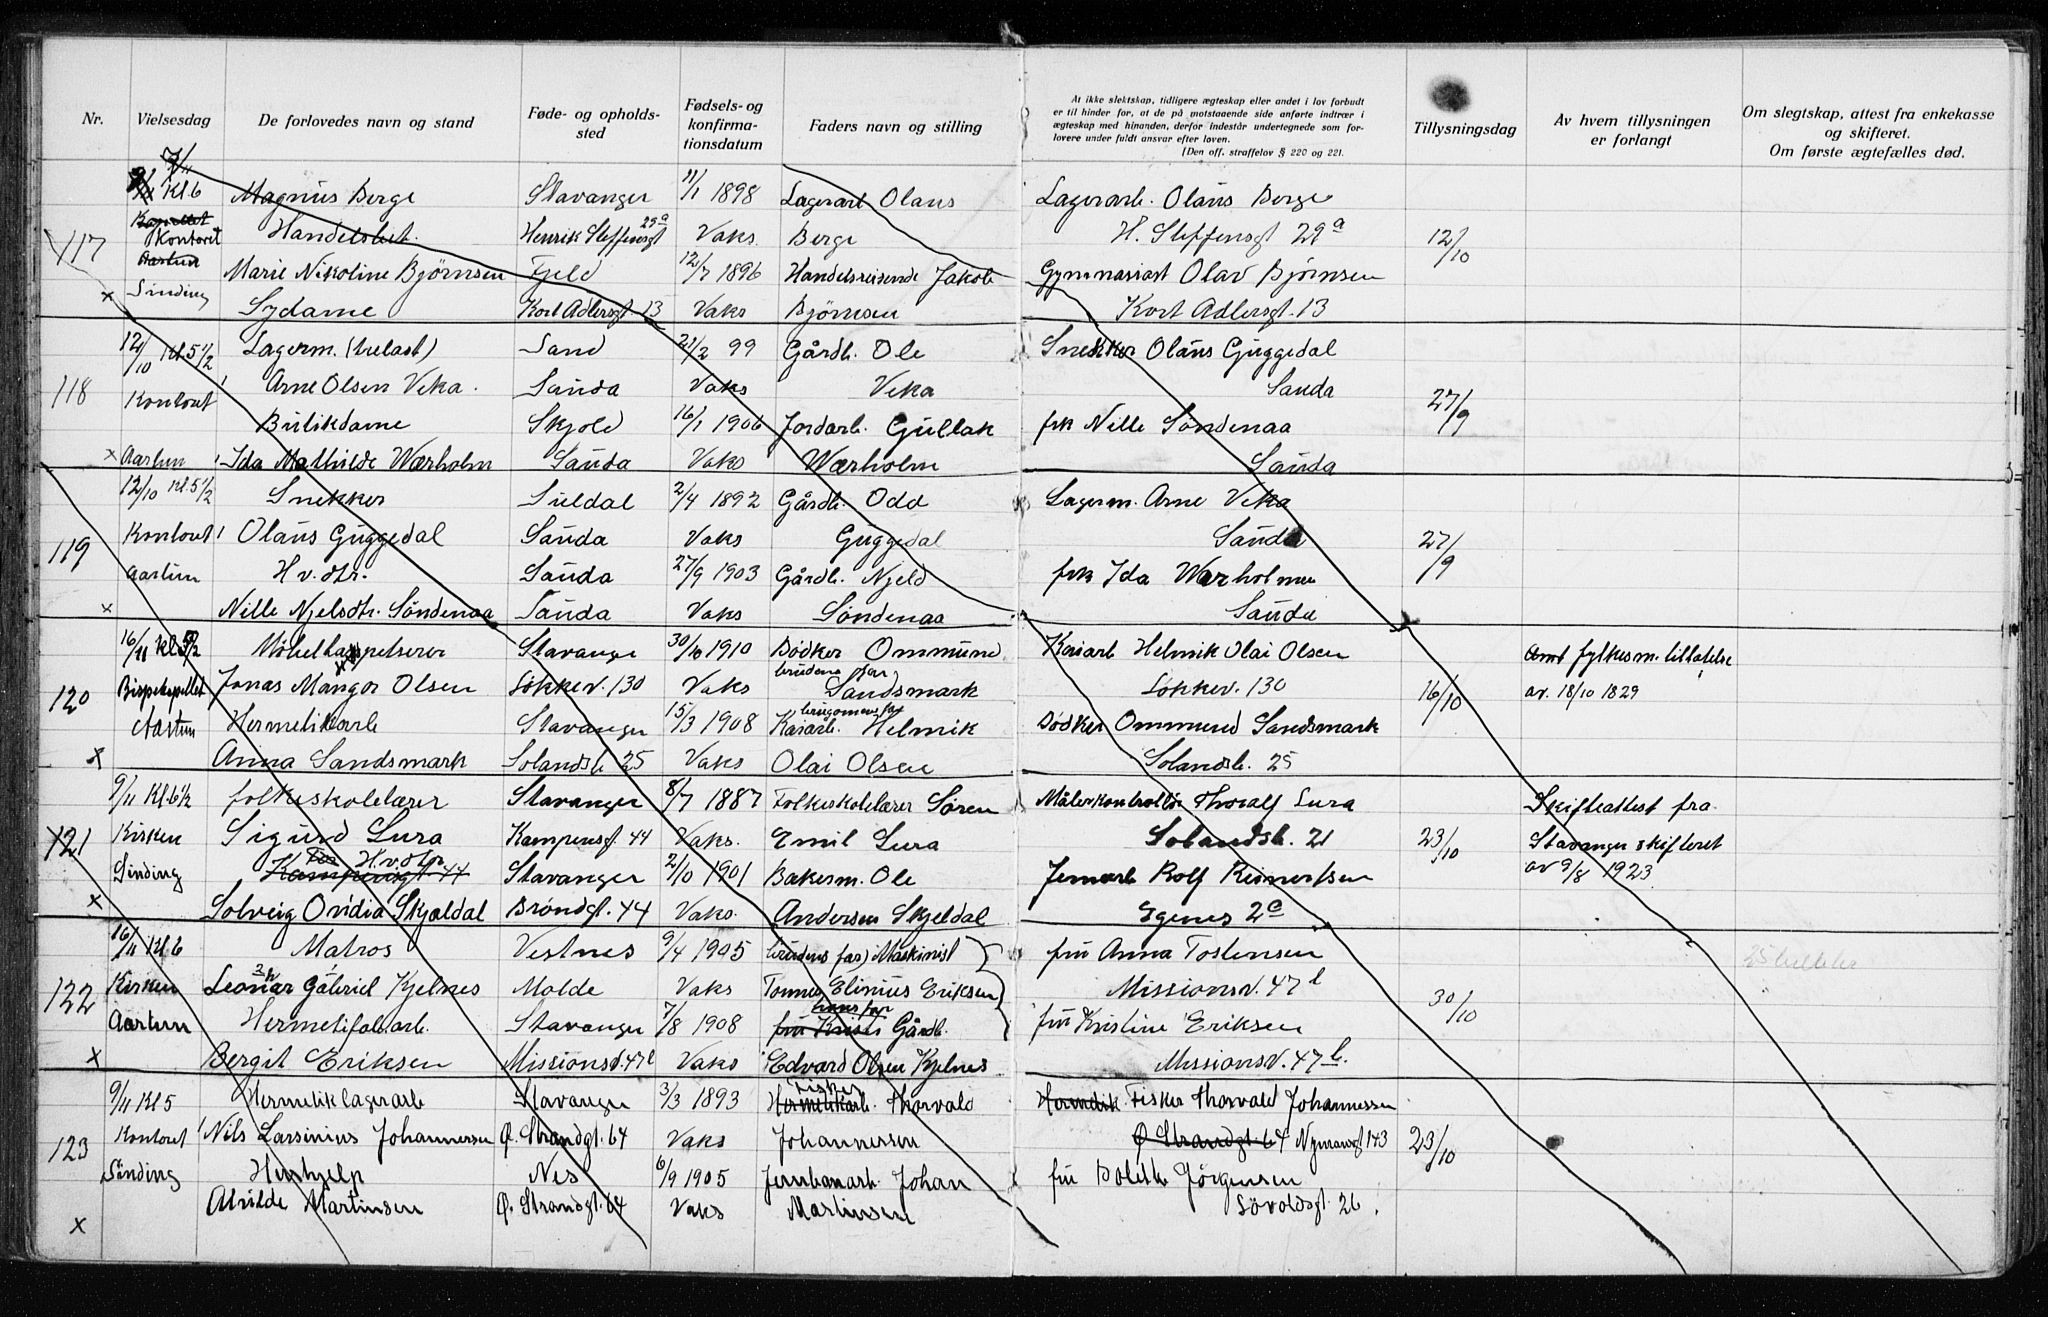 Nr.
Vielsesdag
De forlovedes navn og stand
Føde- og opholds-
sted
Fødsels- og
konfirma-
tionsdatum
Faders navn og stilling
At ikke slektskap, tidligere ægteskap eller andet i lov forbudt
er til hinder for, at de på motstaaende side anførte indtrær i
ægteskap med hinanden, derfor indestår undertegnede som for-
lovere under fuldt ansvar efter loven.
[Den off. straffelov § 220 og 221.
Tillysningsdag
Av hvem tillysningen
er forlangt
Om slegtskap, attest fra enkekasse
og skifteret.
Om første ægtefælles død.
7/11
Kl. 6 Magnus Berge Stavanger 11/1 1898 Lagerarb Olaus Lagerarb. Olaus Berge
117 Kapellet Kontoret Handelsbet. Henrik Steffensgt 29a Vaks. Berge H. Steffensgt 29a 12/10
Aartun Marie Nikoline Bjørnsen Fjeld 12/7 1896 Handelsreisende Jakob Gymnasiast Olav Bjørnsen
x Sinding Sydame Kort Adlersgt. 13 Vaks Bjørnsen Kort Adlersgt. 13
12/10 Kl. 5 1/2 Lagerm. (trelast) Sand 21/2 99 Gårdb. Ole Snekker Olaus Guggedal
118 Kontoret Arne Olsen Veka. Sauda Vaks Veka Sauda 27/9
Butikdame Skjold 16/1 1906 Jordarb. Gullak frk Nille Søndenaa
x Aartun Ida Mathilde Wærholm Sauda Vaks Wærholm Sauda
12/10 Kl. 5 1/2 Snekker Suldal 2/4 1892 Gårdb. Odd Lagerm. Arne Veka
119 Kontoret Olaus Guggedal Sauda Vaks Guggedal Sauda 27/9
Aartun H v. dtr. Sauda 27/9 1903 Gårdb. Njeld frk Ida Wærholmen
x Nille Njelsdtr. Søndenaa Sauda Vaks Søndenaa Sauda
16/11 Kl. 5 1/2 Møbeltapetserer Stavanger 30/10 1910 Bødker Ommund Kaiarb Helmik Olai Olsen Amt fylkesm. tillatelse
120 Bispekapellet Jonas Mangor Olsen Løkkev. 130 Vaks brudens far Sandsmark Løkkev. 130 16/10 av. 18/10 1829
Aartun Hermetikarb Stavanger 15/3 1908 brugomens far Kaiarb. Helmik Bødker Ommund Sandsmark
x Anna Sandsmark Solandsb. 25 Vaks Olai Olsen Solandsb. 25
9/11 Kl. 6 1/2 folkeskolelærer Stavanger 8/7 1887 Folkeskolelærer Søren Målerkontrollør Thoralf Lura Skifteattest fra
121 Kirken Sigurd Lura Kampensgt. 44 Vaks. Emil Lura Solandsb. 21 23/10 Stavanger skifteret
Sinding Kampensgt 44 H v. dtr. Stavanger 2/10 1901 Bakerm. Ole Jernarb Rolf Reinertsen av 9/8 1923
x Solveig Ovidia Skjældal Brøndgt. 44 Vaks. Andersen Skjeldal Egenes 2a
16/11 Kl. 6 Matros Vestnes 9/4 1905 brudens far) Maskinist fru Anna Tostensen
122 Kirken Leonar Gabriel Kjelnes Molde Vaks Tonnes Elinius Eriksen Missionsv. 47 b 30/10
Aartun Hermetifab.arb. Stavanger 7/8 1908 hans far Gårdb. fru Kristine Eriksen
x Bergit Eriksen Missionsv. 47b Vaks Edvard Olsen Kjelnes Missionsv. 47 b.
9/11 Kl 5 Hermetiklagerarb Stavanger 3/3 1893 Hermetikarb. Fisker Thorvald Hermetik Fisker Thorvald Johannessen
123 Kontoret Nils Larsinius Johannessen Ø. Strandgt. 64 Vaks Johannessen Ø Strandgt. 64 Nymansgt 143 23/10
Sinding Hushjelp Nes 6/9 1905 Jernbanarb. Johan fru Bolette Jørgensen
x Alvilde Martinsen Ø. Strandgt. 64 Vaks Martinsen Søvoldsgt. 26.